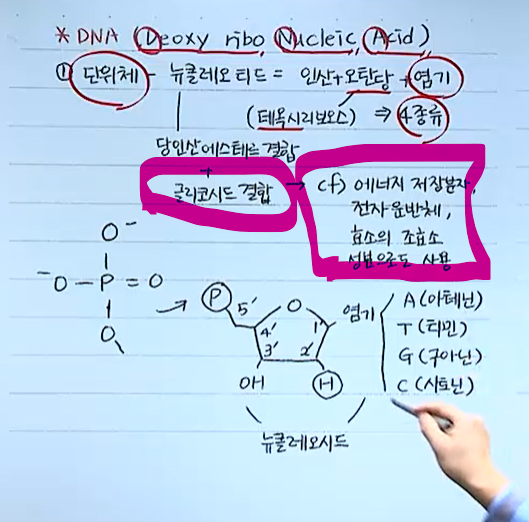 * DNA (Deoxy ribo Nucleic Acid)
① 단위체 - 뉴클레오티드 = 인산+오탄당+염기
(데옥시리보오스) ⇒ 4종류
당인산에스테르 결합
+
글리코시드 결합 → cf) 에너지 저장분자,
전자운반체,
효소의 조효소
성분으로도 사용
O⁻
⁻O-P=O
O
P 5' O 염기
4' 1'
3' 2'
OH H
A (아데닌)
T (티민)
G (구아닌)
C (시토닌)
뉴클레오시드